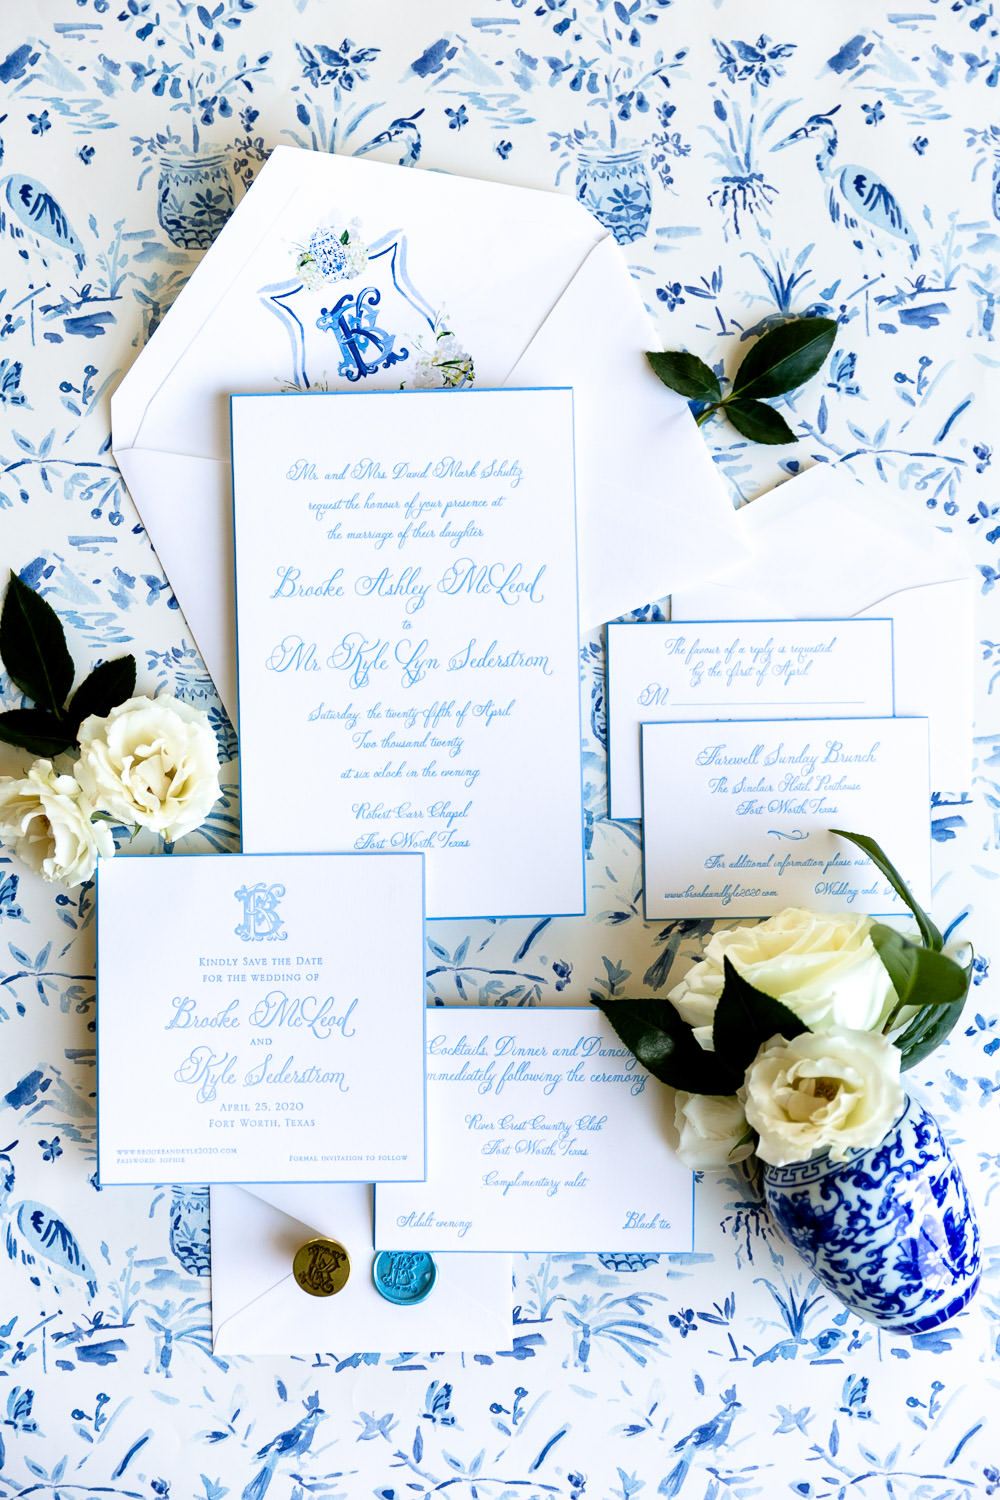 Mr. and Mrs. David Mark Schultz
request the honour of your presence at
the marriage of their daughter
Brooke Ashley McLeod
to
Mr. Kyle Lyn Sederstrom
Saturday, the twenty-fifth of April
Two thousand twenty
at six o'clock in the evening
Robert Carr Chapel
Fort Worth, Texas
The favour of a reply is requested
by the first of April
M
Farewell Sunday Brunch
The Sinclair Hotel, Penthouse
Fort Worth, Texas
For additional information please visit
www.brookeandkyle2020.com Wedding code:
KINDLY SAVE THE DATE
FOR THE WEDDING OF
Brooke McLeod
AND
Kyle Sederstrom
APRIL 25, 2020
FORT WORTH, TEXAS
WWW.BROOKEANDKYLE2020.COM
PASSWORD: SOPHIE
FORMAL INVITATION TO FOLLOW
Cocktails, Dinner and Dancing
immediately following the ceremony
River Crest Country Club
Fort Worth, Texas
Complimentary valet
Adult evening Black tie